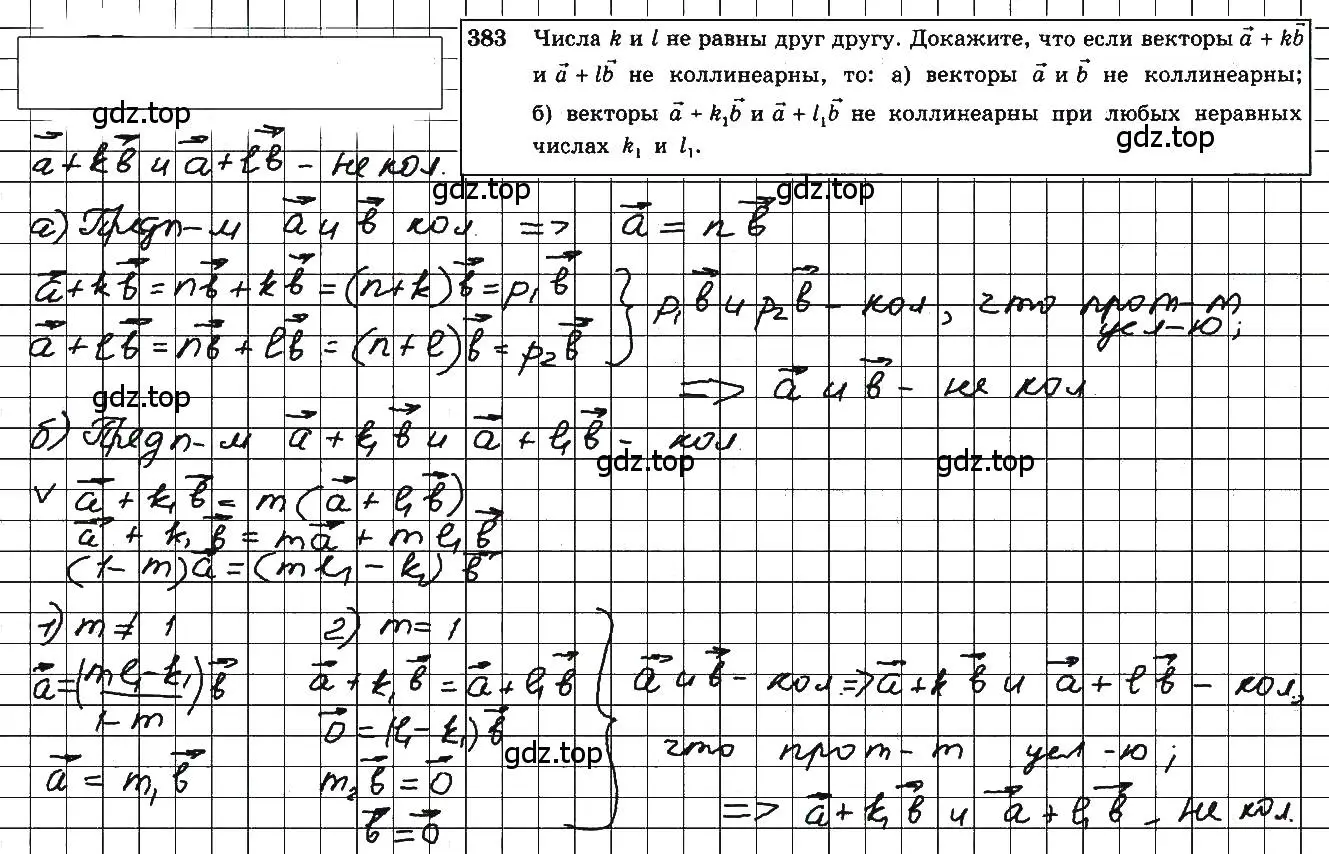 383 Числа k и l не равны друг другу. Докажите, что если векторы a⃗ + kb⃗
и a⃗ + lb⃗ не коллинеарны, то: а) векторы a⃗ и b⃗ не коллинеарны;
б) векторы a⃗ + k₁b⃗ и a⃗ + l₁b⃗ не коллинеарны при любых неравных
числах k₁ и l₁.
gdz.top
gdz.top
a⃗ + kв⃗ и a⃗ + lв⃗ – не кол.
gdz.top
gdz.top
а) Предп-м a⃗ и в⃗ кол. => a⃗ = nв⃗
a⃗ + kв⃗ = nв⃗ + kв⃗ = (n+k)в⃗ = p₁в⃗
a⃗ + lв⃗ = nв⃗ + lв⃗ = (n+l)в⃗ = p₂в⃗
p₁в⃗ и p₂в⃗ – кол, что прот-т
усл-ю;
=> a⃗ и в⃗ – не кол
gdz.top
б) Предп-м a⃗ + k₁в⃗ и a⃗ + l₁в⃗ – кол
gdz.top
gdz.top
v a⃗ + k₁в⃗ = m(a⃗ + l₁в⃗)
a⃗ + k₁в⃗ = ma⃗ + ml₁в⃗
(1–m)a⃗ = (ml₁ – k₁)в⃗
1) m ≠ 1
a⃗ = ((ml₁–k₁)/(1–m))в⃗
a⃗ = m₁в⃗
2) m = 1
a⃗ + k₁в⃗ = a⃗ + l₁в⃗
0⃗ = (l₁–k₁)в⃗
gdz.top
m₂в⃗ = 0⃗
в⃗ = 0⃗
a⃗ и в⃗ – кол => a⃗ + kв⃗ и a⃗ + lв⃗ – кол,
что прот-т усл-ю;
=> a⃗ + k₁в⃗ и a⃗ + l₁в⃗ – не кол.